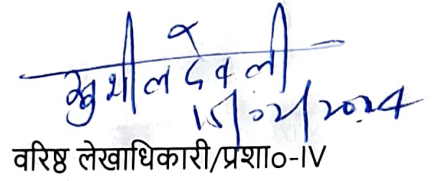 सुशील देवली
15/02/2024
वरिष्ठ लेखाधिकारी/प्रशा०-IV